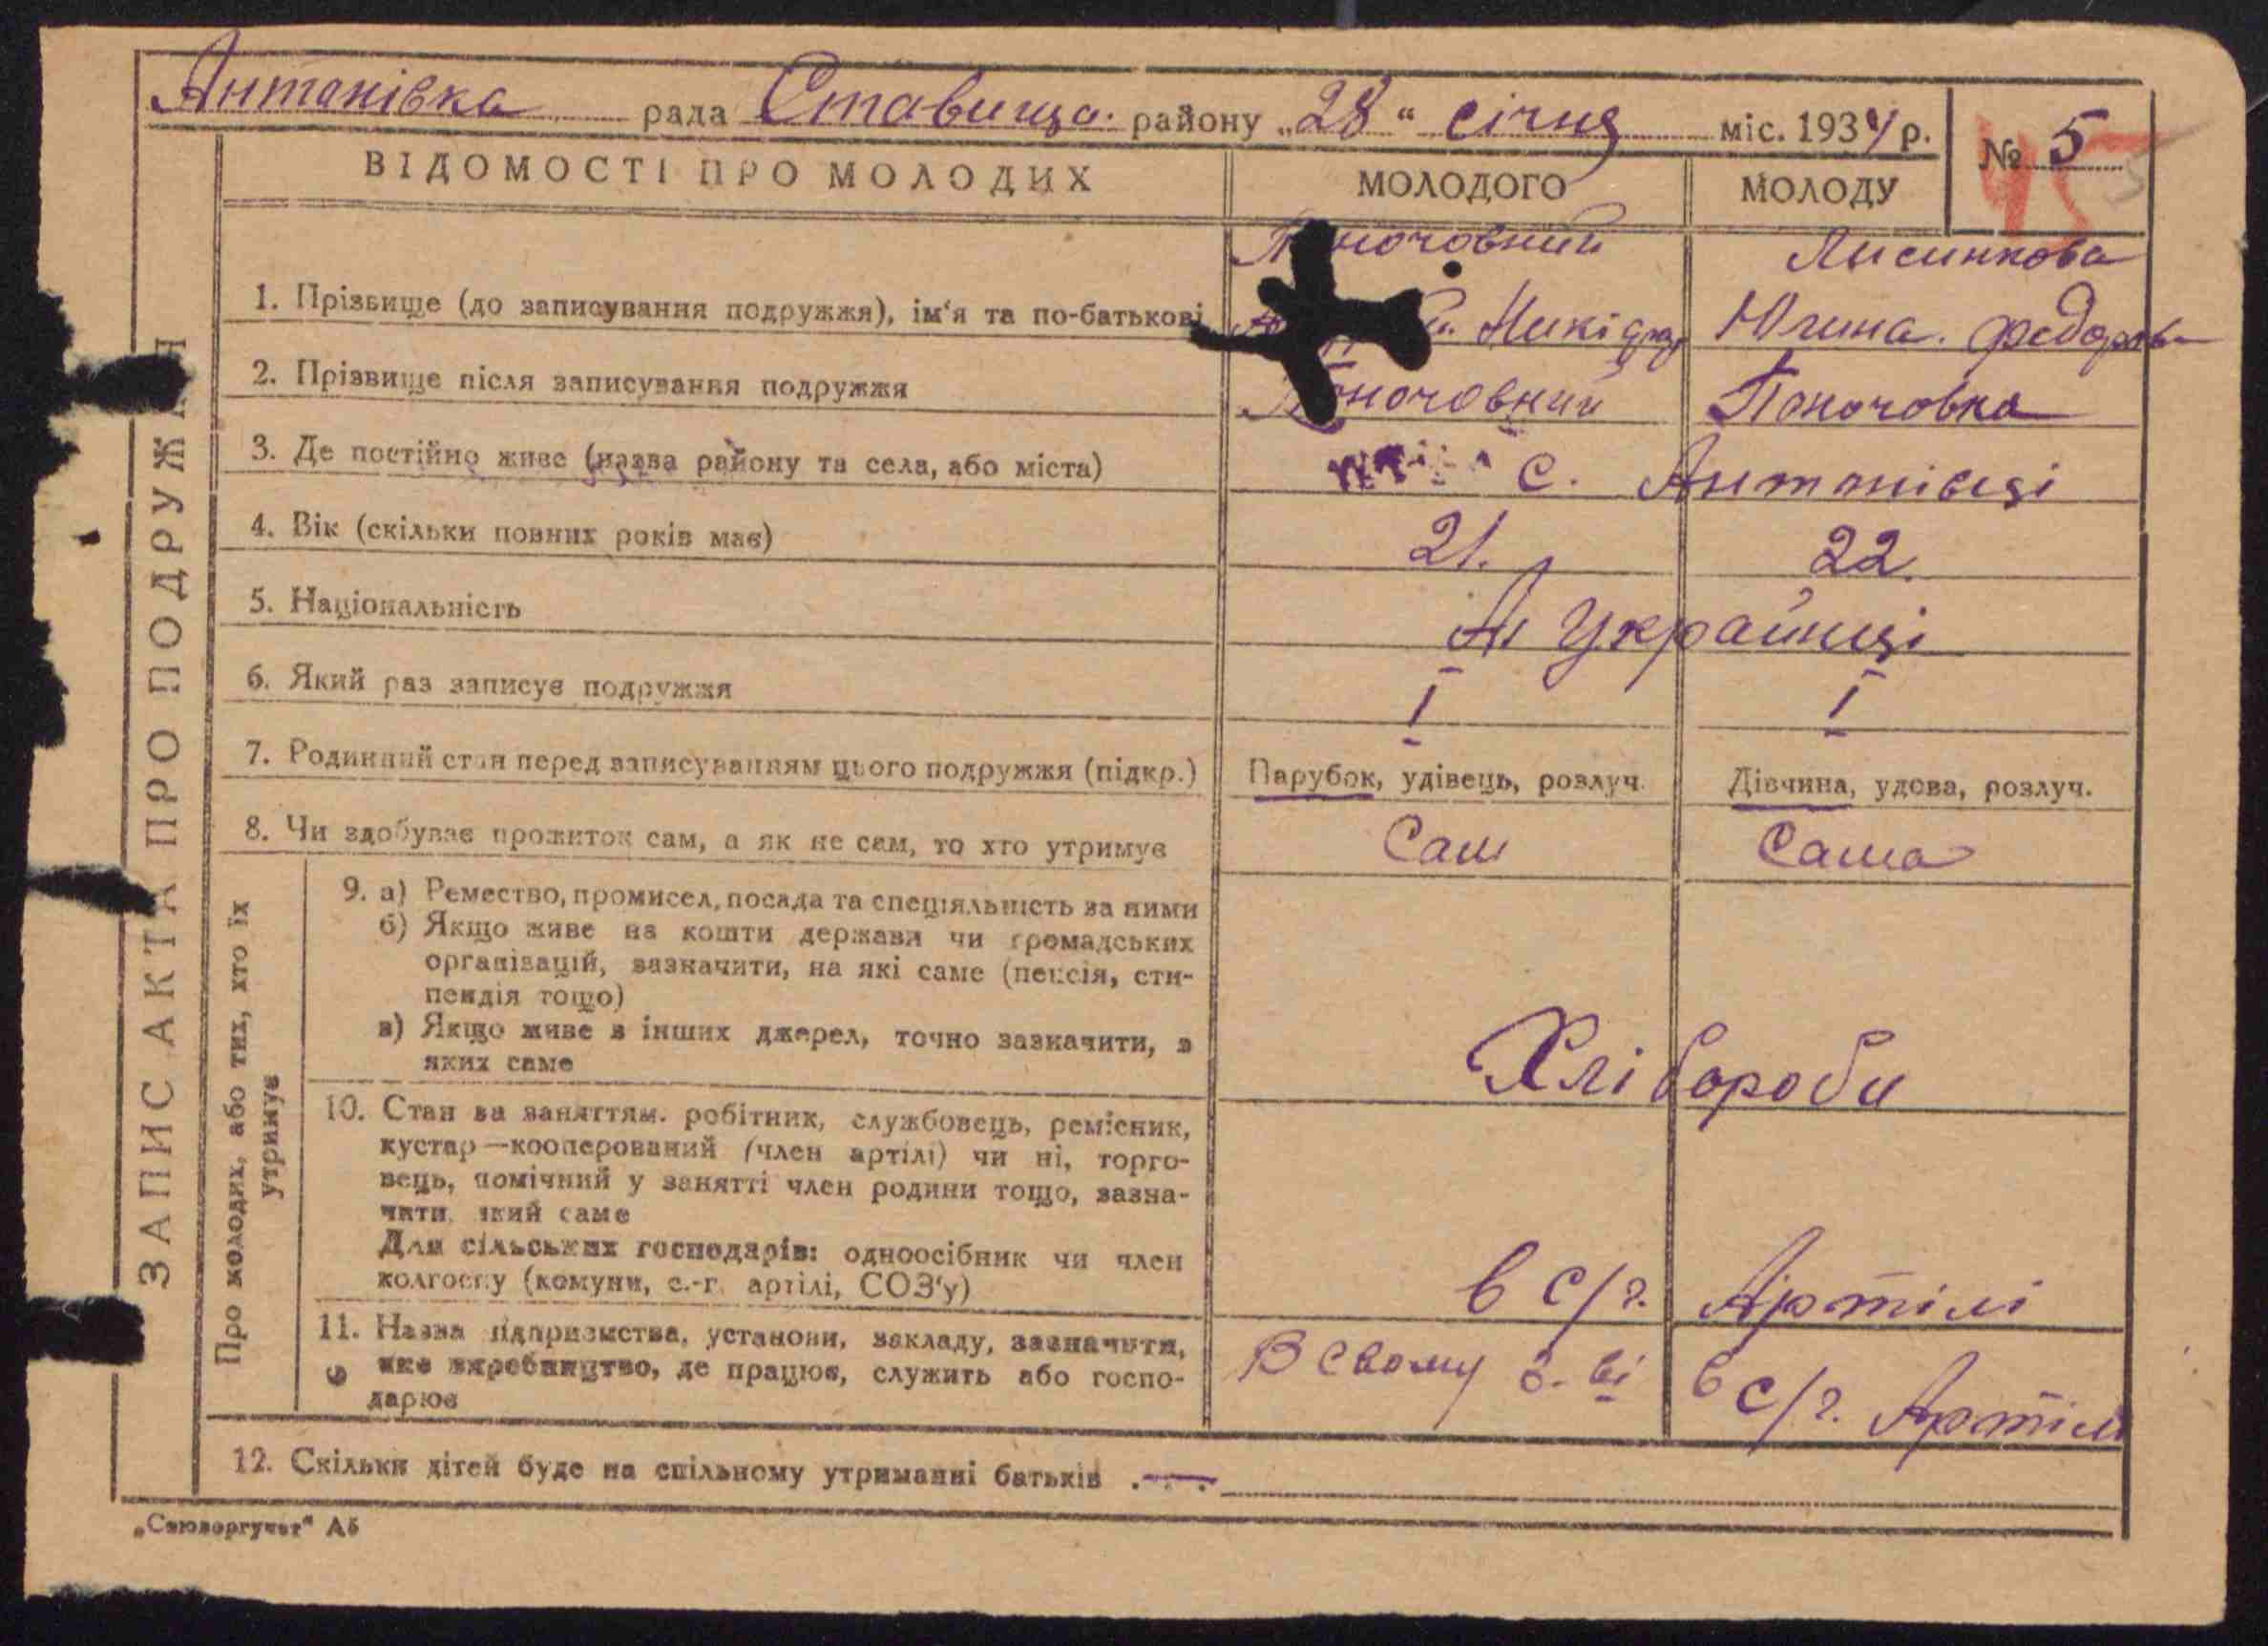 Антонівка рада Ставища. району „28“ січня міс. 1934 р.
№ 5
ВІДОМОСТІ ПРО МОЛОДИХ МОЛОДОГО МОЛОДУ
ЗАПИС АКТА ПРО ПОДРУЖЖЯ
Лисинкова
1. Прізвище (до записування подружжя), ім'я та по-батькові Юхина. Федорів
2. Прізвище після записування подружжя Поночовний Поночовна
3. Де постійно живе (назва району та села, або міста) с. Антонівці
4. Вік (скільки повних років має) 21. 22.
5. Національність Українці
6. Який раз записує подружжя I I
7. Родинний стан перед записуванням цього подружжя (підкр.) Парубок, удівець, розлуч. Дівчина, удова, розлуч.
8. Чи здобуває прожиток сам, а як не сам, то хто утримує Сам Сама
Про молодих, або тих, хто їх
утримує
9. а) Ремество, промисел, посада та спеціяльність за ними
б) Якщо живе на кошти держави чи громадських
організацій, зазначити, на які саме (пенсія, сти-
пендія тощо)
в) Якщо живе з інших джерел, точно зазначити, з
яких саме
Хлібороби
10. Стан за заняттям. робітник, службовець, ремісник,
кустар—кооперований (член артілі) чи ні, торго-
вець, помічний у занятті член родини тощо, зазна-
чити, який саме
Для сільських господарів: одноосібник чи член
колгоспу (комуни, с.-г. артілі, СОЗ'у) в с/г. Артілі
11. Назва підприємства, установи, закладу, зазначити,
яке виробництво, де працює, служить або госпо-
дарює
В свому в с/г. Артілі
12. Скільки дітей буде на спільному утриманні батьків . — .
„Союзоргучет“ А5